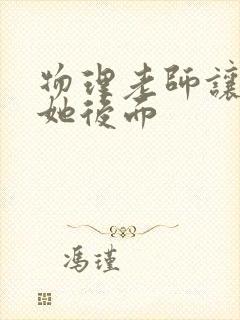 物理老師讓
她後而
馮瑾